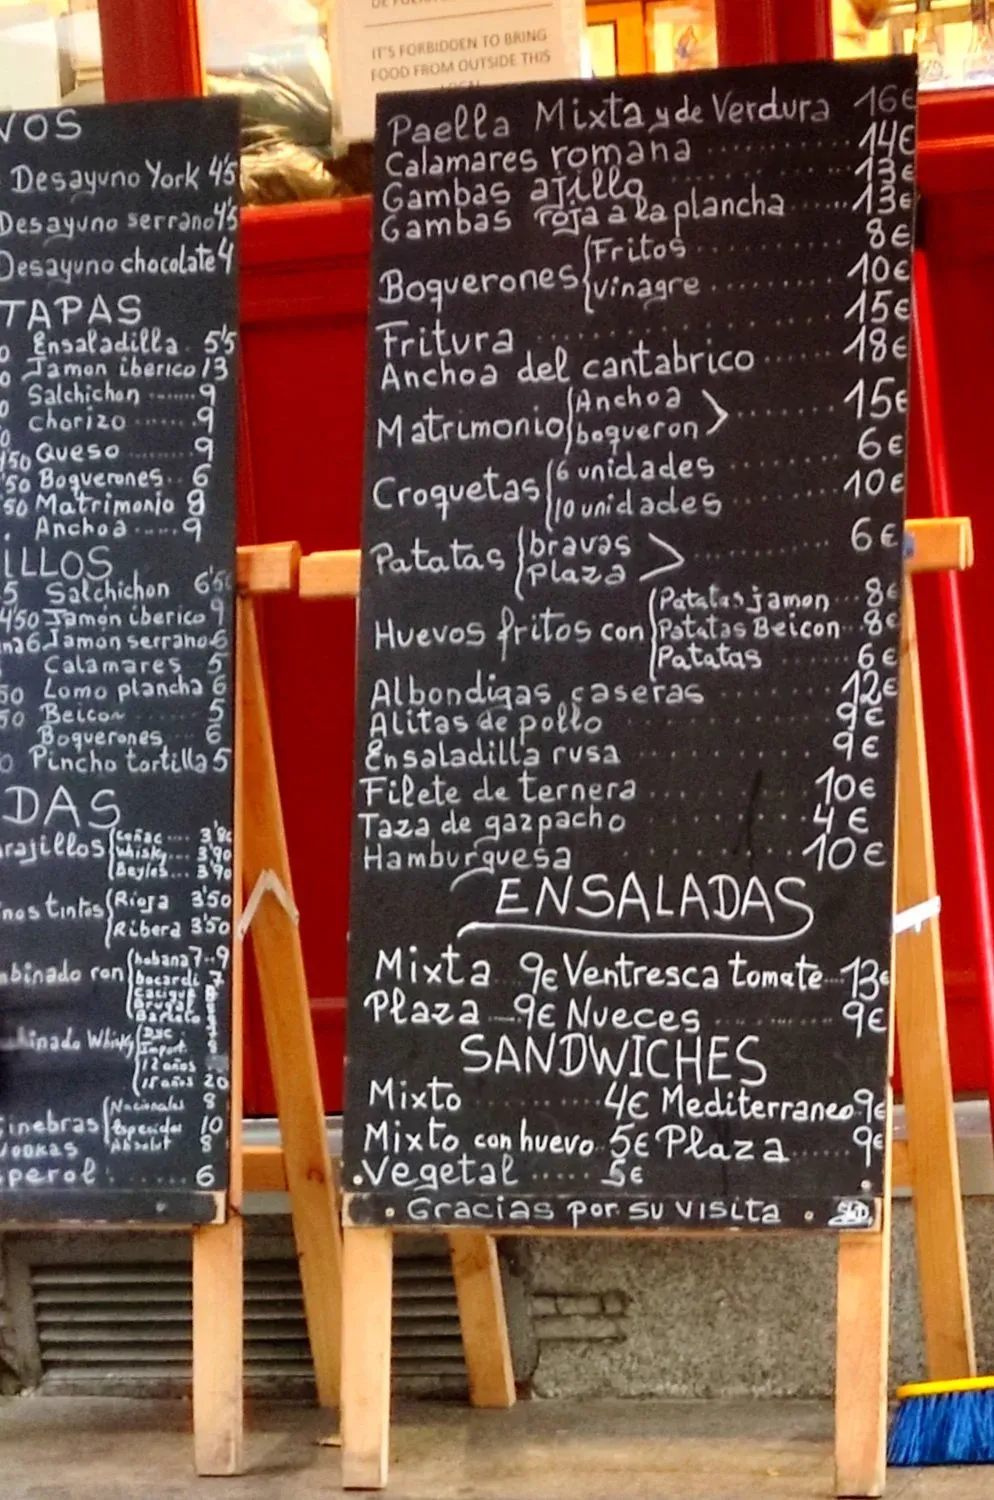 IT'S FORBIDDEN TO BRING
FOOD FROM OUTSIDE THIS
VOS
Desayuno York 4'5
Desayuno serrano 4'5
Desayuno chocolate 4
TAPAS
Ensaladilla 5'5
Jamon iberico 13
Salchichon ....... 9
chorizo ...... 9
'50 Queso ........ 9
'50 Boquerones.. 6
50 Matrimonio 9
Anchoa ..... 9
ILLOS
5 Salchichon 6'50
4'50 Jamon iberico 9
na6 Jamon serrano 6
Calamares 5
50 Lomo plancha 6
50 Beicon 5
Boquerones 6
0 Pincho tortilla 5
DAS
rajillos Coñac ... 3'90
whisky... 3'90
Beyles... 3'90
nos tintos Rioja 3'50
Ribera 3'50
binado ron habana 7 .. 9
bacardi 7
Cacique
Brugal
inado Whisky Dyc
Import.
12 años
15 años 20
Ginebras Nacionales 8
Especiales 10
Vodkas Absolut 8
perol ....... 6
Paella Mixta y de Verdura 16€
Calamares romana ........ 14€
Gambas ajillo ........ 13€
Gambas roja a la plancha ...... 13€
Boquerones Fritos ........ 8€
vinagre ........ 10€
Fritura ........ 15€
Anchoa del cantabrico ...... 18€
Matrimonio Anchoa
boqueron ....... 15€
Croquetas 6 unidades ....... 6€
10 unidades ....... 10€
Patatas bravas
plaza ....... 6€
Huevos fritos con Patatas jamon ... 8€
Patatas Beicon .. 8€
Patatas ...... 6€
Albondigas caseras ....... 12€
Alitas de pollo ....... 9€
Ensaladilla rusa ....... 9€
Filete de ternera ....... 10€
Taza de gazpacho ....... 4€
Hamburguesa ....... 10€
ENSALADAS
Mixta .. 9€ Ventresca tomate ... 13€
Plaza ... 9€ Nueces ........ 9€
SANDWICHES
Mixto ........ 4€ Mediterraneo 9€
Mixto con huevo. 5€ Plaza ..... 9€
.Vegetal ..... 5€
. Gracias por su visita .